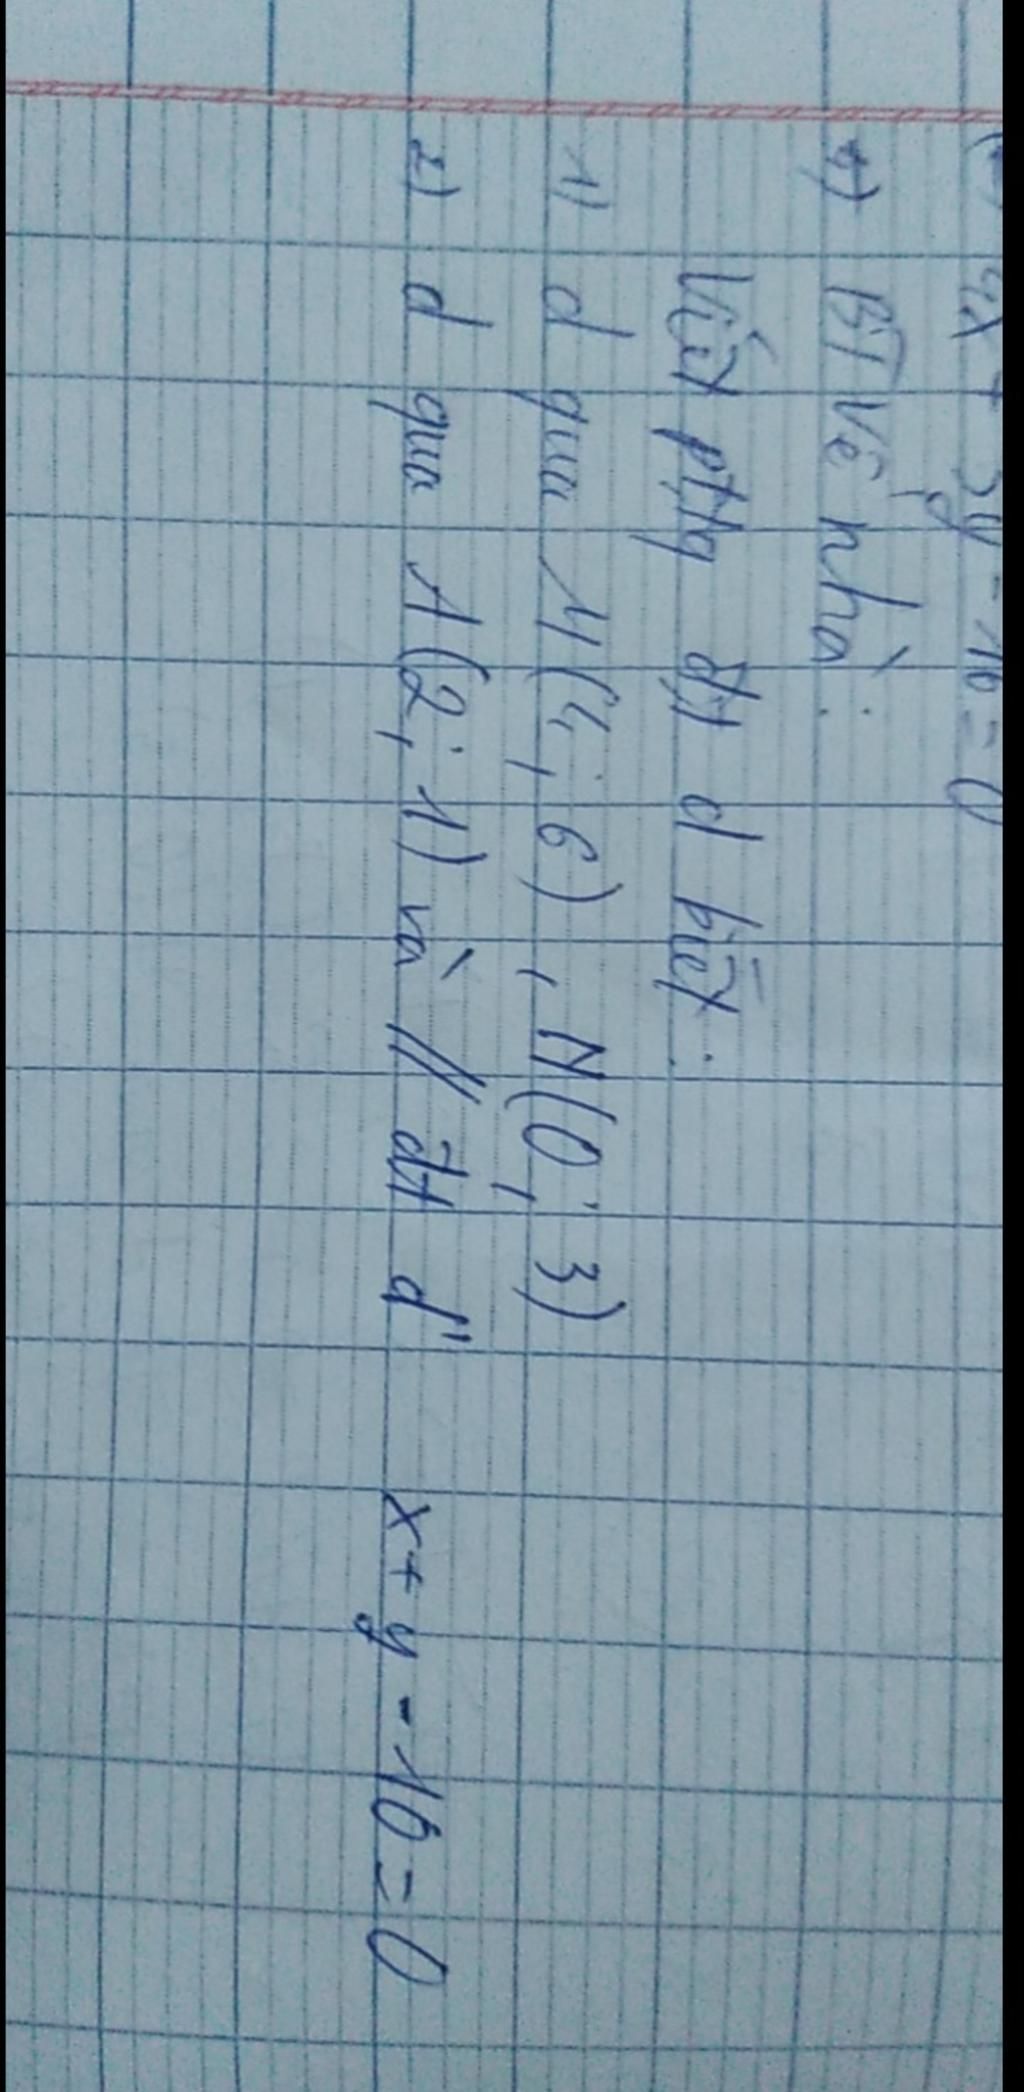 4x + 3y - 16 = 0
BT Về nhà:
Viết pttq đt d biết:
1) d qua M(4; 6), N(0; 3)
2) d qua A(2; 1) và // đt d' x + y - 16 = 0